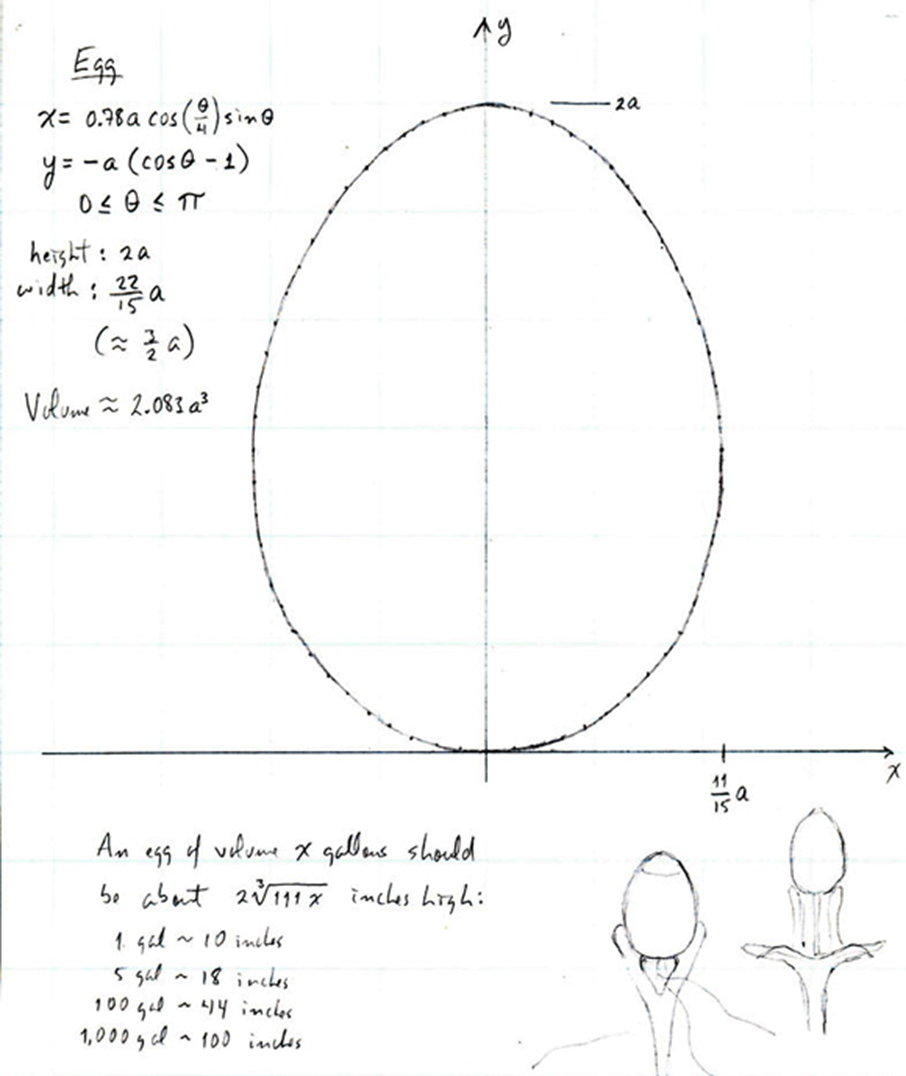 Egg
x = 0.78a cos(θ/4) sinθ
y = -a (cosθ - 1)
0 ≤ θ ≤ π
height : 2a
width : 22/15 a
(≈ 3/2 a)
Volume ≈ 2.083a³
y
2a
x
11/15 a
An egg of volume x gallons should
be about 2∛111x inches high:
1 gal ~ 10 inches
5 gal ~ 18 inches
100 gal ~ 44 inches
1,000 gal ~ 100 inches